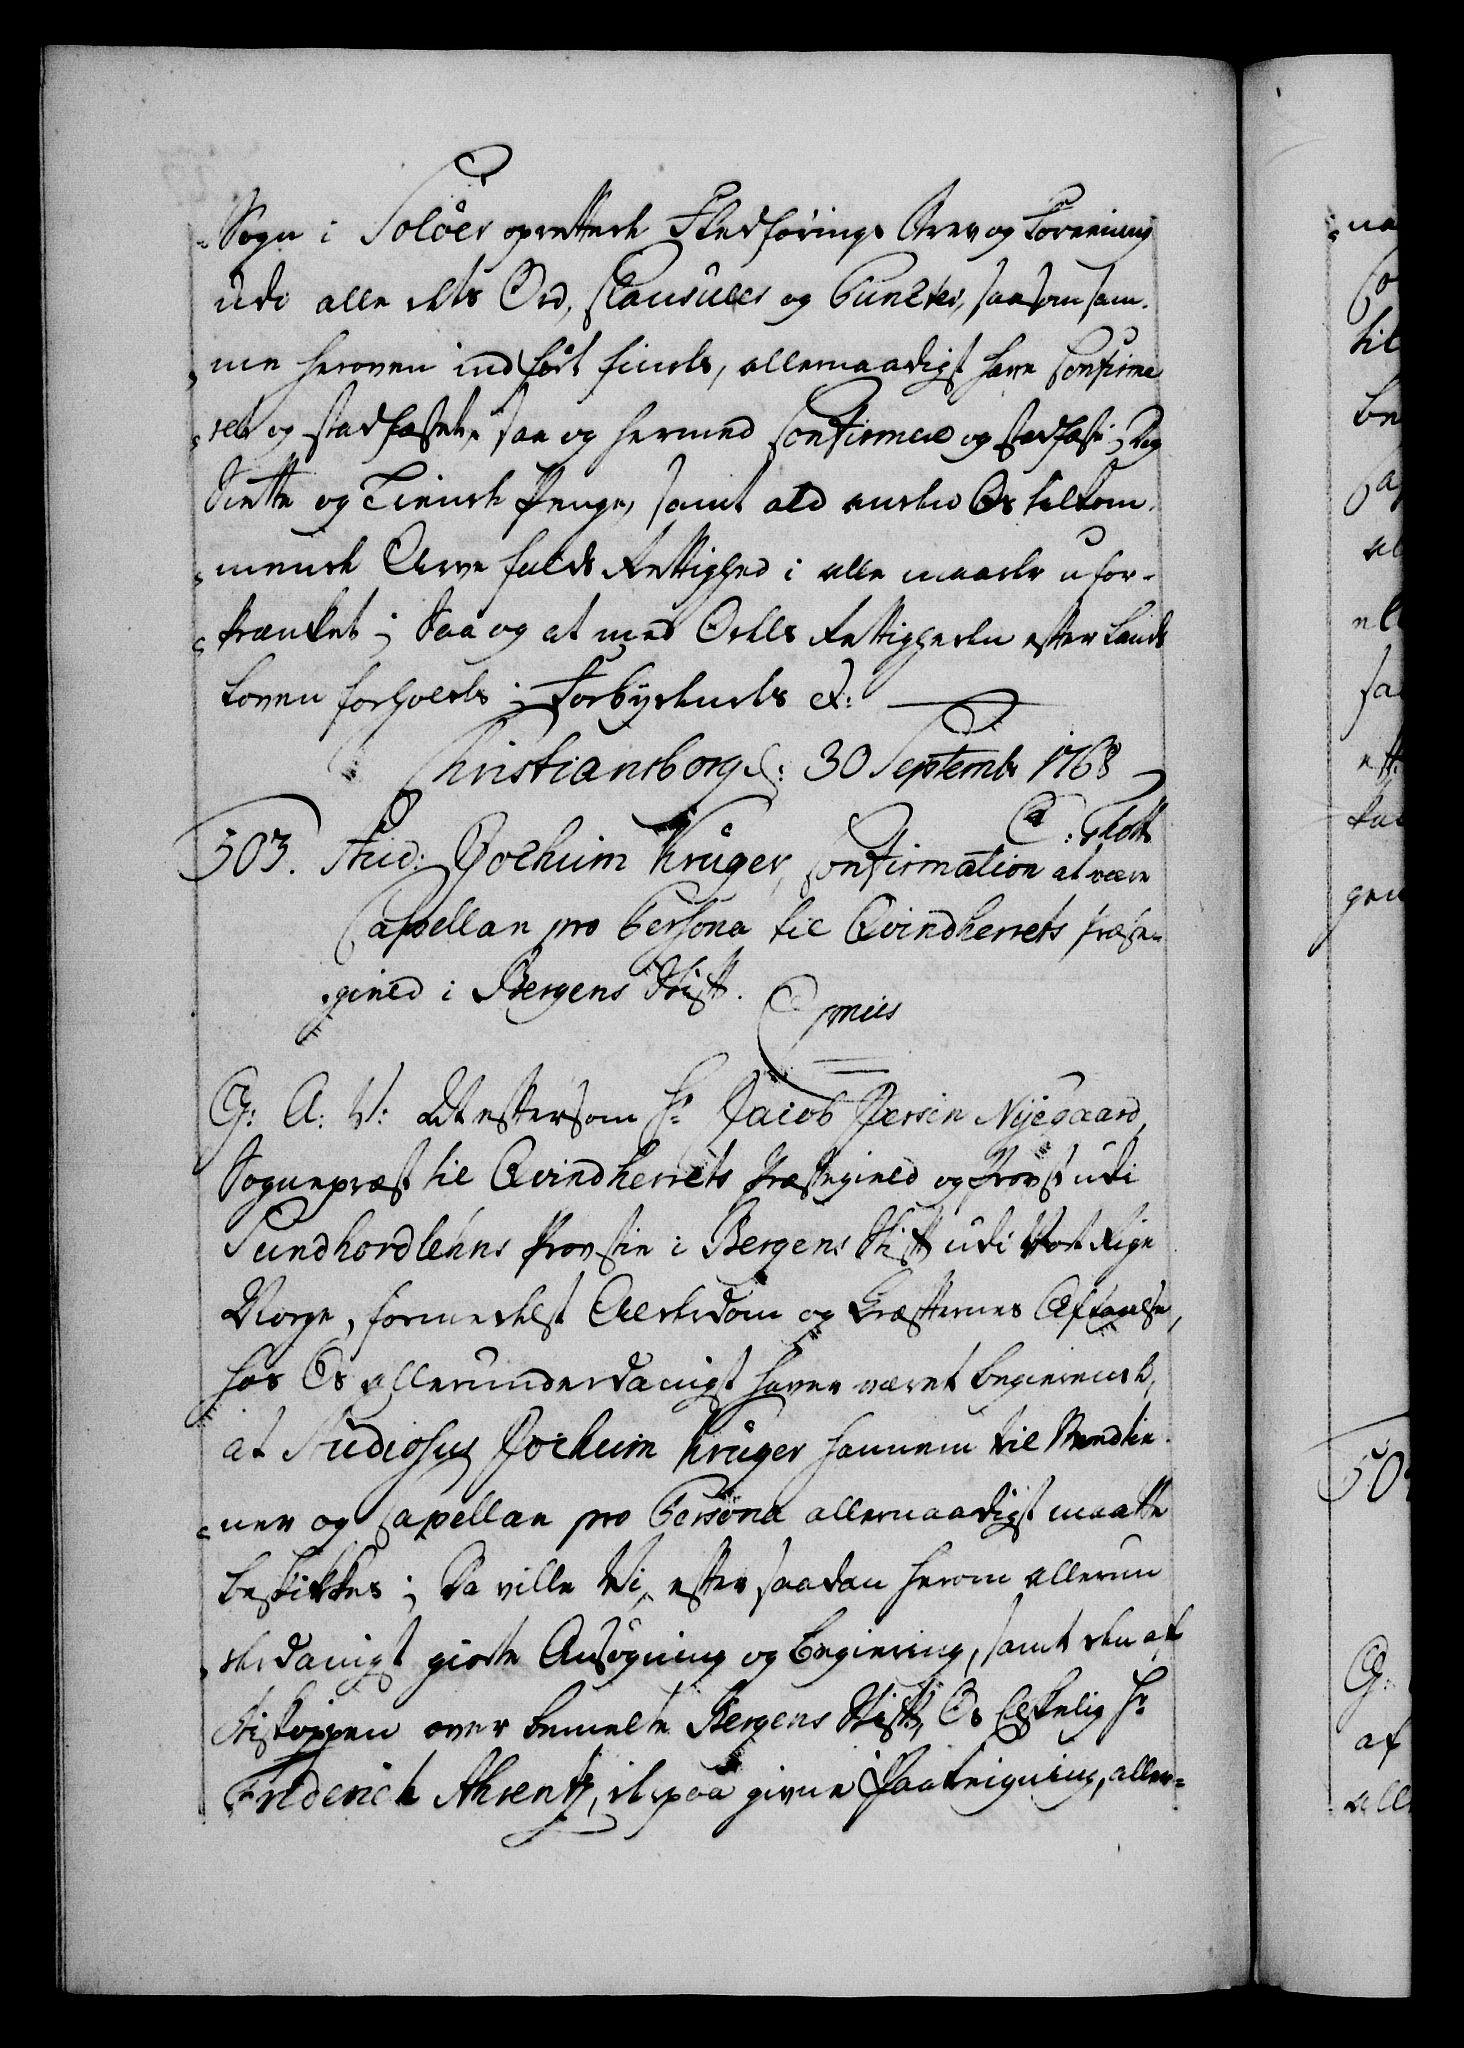 Sogn i Solöer oprettede Fledførings Brev og Forening
udi alle dets Ord, Clausuler og Puncter, saasom sam¬
me heroven indført findes, allernaadigst have Confirme¬
ret og stadfæstet, saa og hermed Confirmere og stadfæste; Dog
Siette og Tiende Penge, samt ald anden Os tilkom¬
mende Arve falds Rettighed i alle maader ufor¬
krænket; Saa og at med Odels Rettigheden efter Lands
Loven forholdes; Forbydendes etc:
Christiansborg d: 30 Septembr 1768
503. Stud: Jochum Krüger, Confirmation at være
Capellan pro Persona til Qvindherrets Præste¬
gield i Bergens Stift.
G: A: V: At eftersom Hr Jacob Jersin Nyegaard,
Sognepræst til Qvindherrets Præstegield og Provst udi
Sundhordlehns Provstie i Bergens Stift udi Vort Rige
Norge, formedelst Alderdom og Kræfternes Aftagelse,
hos Os allerunderdanigst haver været begierende,
at Studiosus Jochum Krüger hannem til Medtie¬
ner og Capellan pro Persona allernaadigst maatte
beskikkes; Da ville Vi, efter saadan herom allerun
derdanigst giorte Ansøgning og Begiering, samt den af
Biskoppen over bemelte Bergens Stift, Os Elskelig Hr
Friderich Ahrentz, derpaa givne Paategning, aller¬